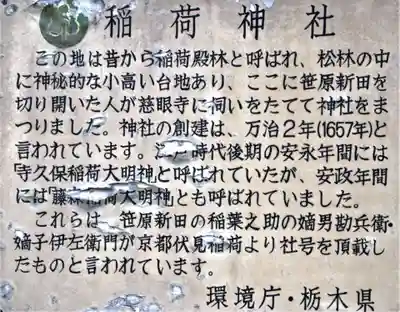 稲荷神社
この地は昔から稲荷殿林と呼ばれ、松林の中
に神秘的な小高い台地あり、ここに笹原新田を
切り開いた人が慈眼寺に伺いをたてて神社をま
つりました。神社の創建は、万治2年(1657年)と
言われています。時代後期の安永年間には
「寺久保稲荷大明神」と呼ばれていたが、安政年間
には「藤森稲荷大明神」とも呼ばれていました。
これらは、笹原新田の稲葉之助の嫡男勘兵衛・
嫡子伊左衛門が京都伏見稲荷より社号を頂載し
たものと言われています。
環境庁・栃木県